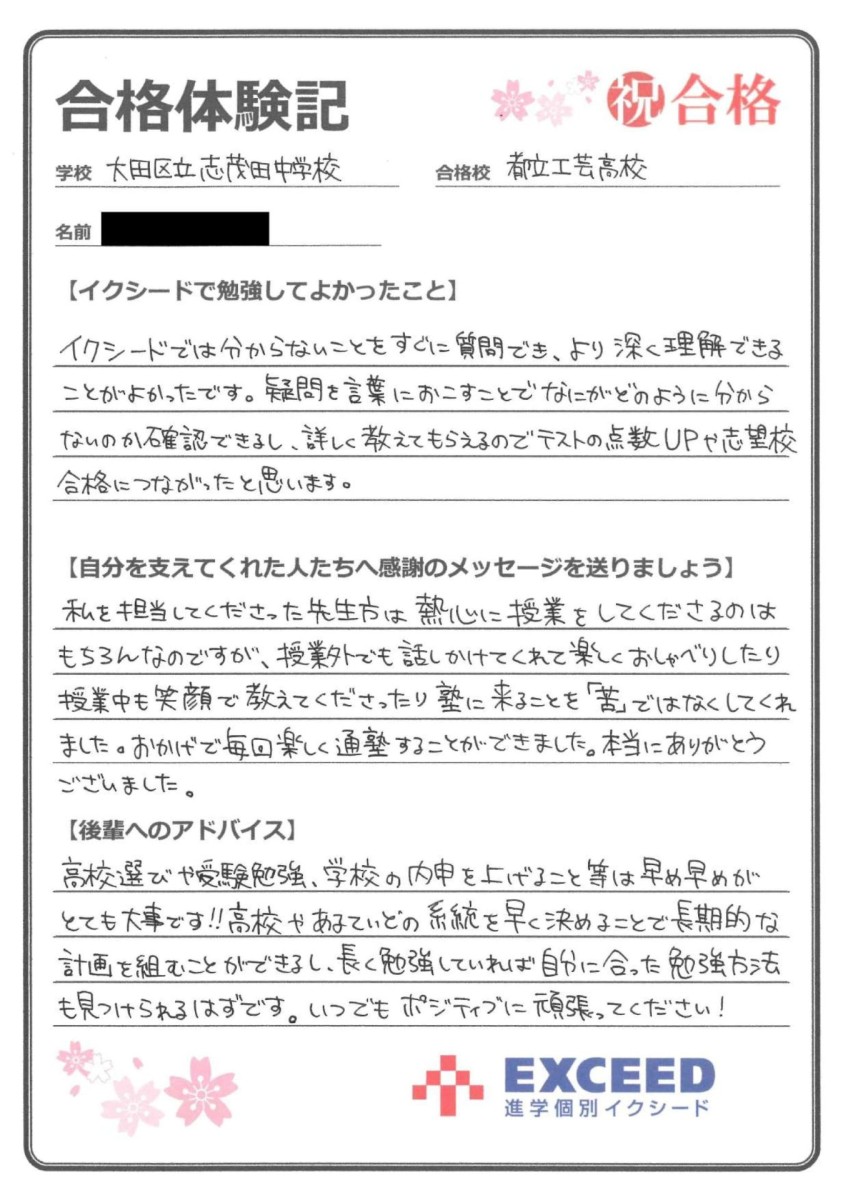 合格体験記
祝 合格
学校 大田区立志茂田中学校
合格校 都立工芸高校
名前
【イクシードで勉強してよかったこと】
イクシードでは分からないことをすぐに質問でき、より深く理解できる
ことがよかったです。疑問を言葉におこすことでなにがどのように分から
ないのか確認できるし、詳しく教えてもらえるのでテストの点数UPや志望校
合格につながったと思います。
【自分を支えてくれた人たちへ感謝のメッセージを送りましょう】
私を担当してくださった先生方は熱心に授業をしてくださるのは
もちろんなのですが、授業外でも話しかけてくれて楽しくおしゃべりしたり
授業中も笑顔で教えてくださったり塾に来ることを「苦」ではなくしてくれ
ました。おかげで毎回楽しく通塾することができました。本当にありがとう
ございました。
【後輩へのアドバイス】
高校選びや受験勉強、学校の内申を上げること等は早め早めが
とても大事です!!高校やあるていどの系統を早く決めることで長期的な
計画を組むことができるし、長く勉強していれば自分に合った勉強方法
も見つけられるはずです。いつでもポジティブに頑張ってください!
EXCEED
進学個別イクシード